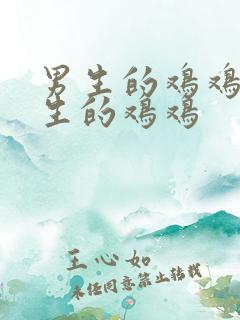 男生的鸡鸡
生的鸡鸡
王心如
未经同意禁止转载